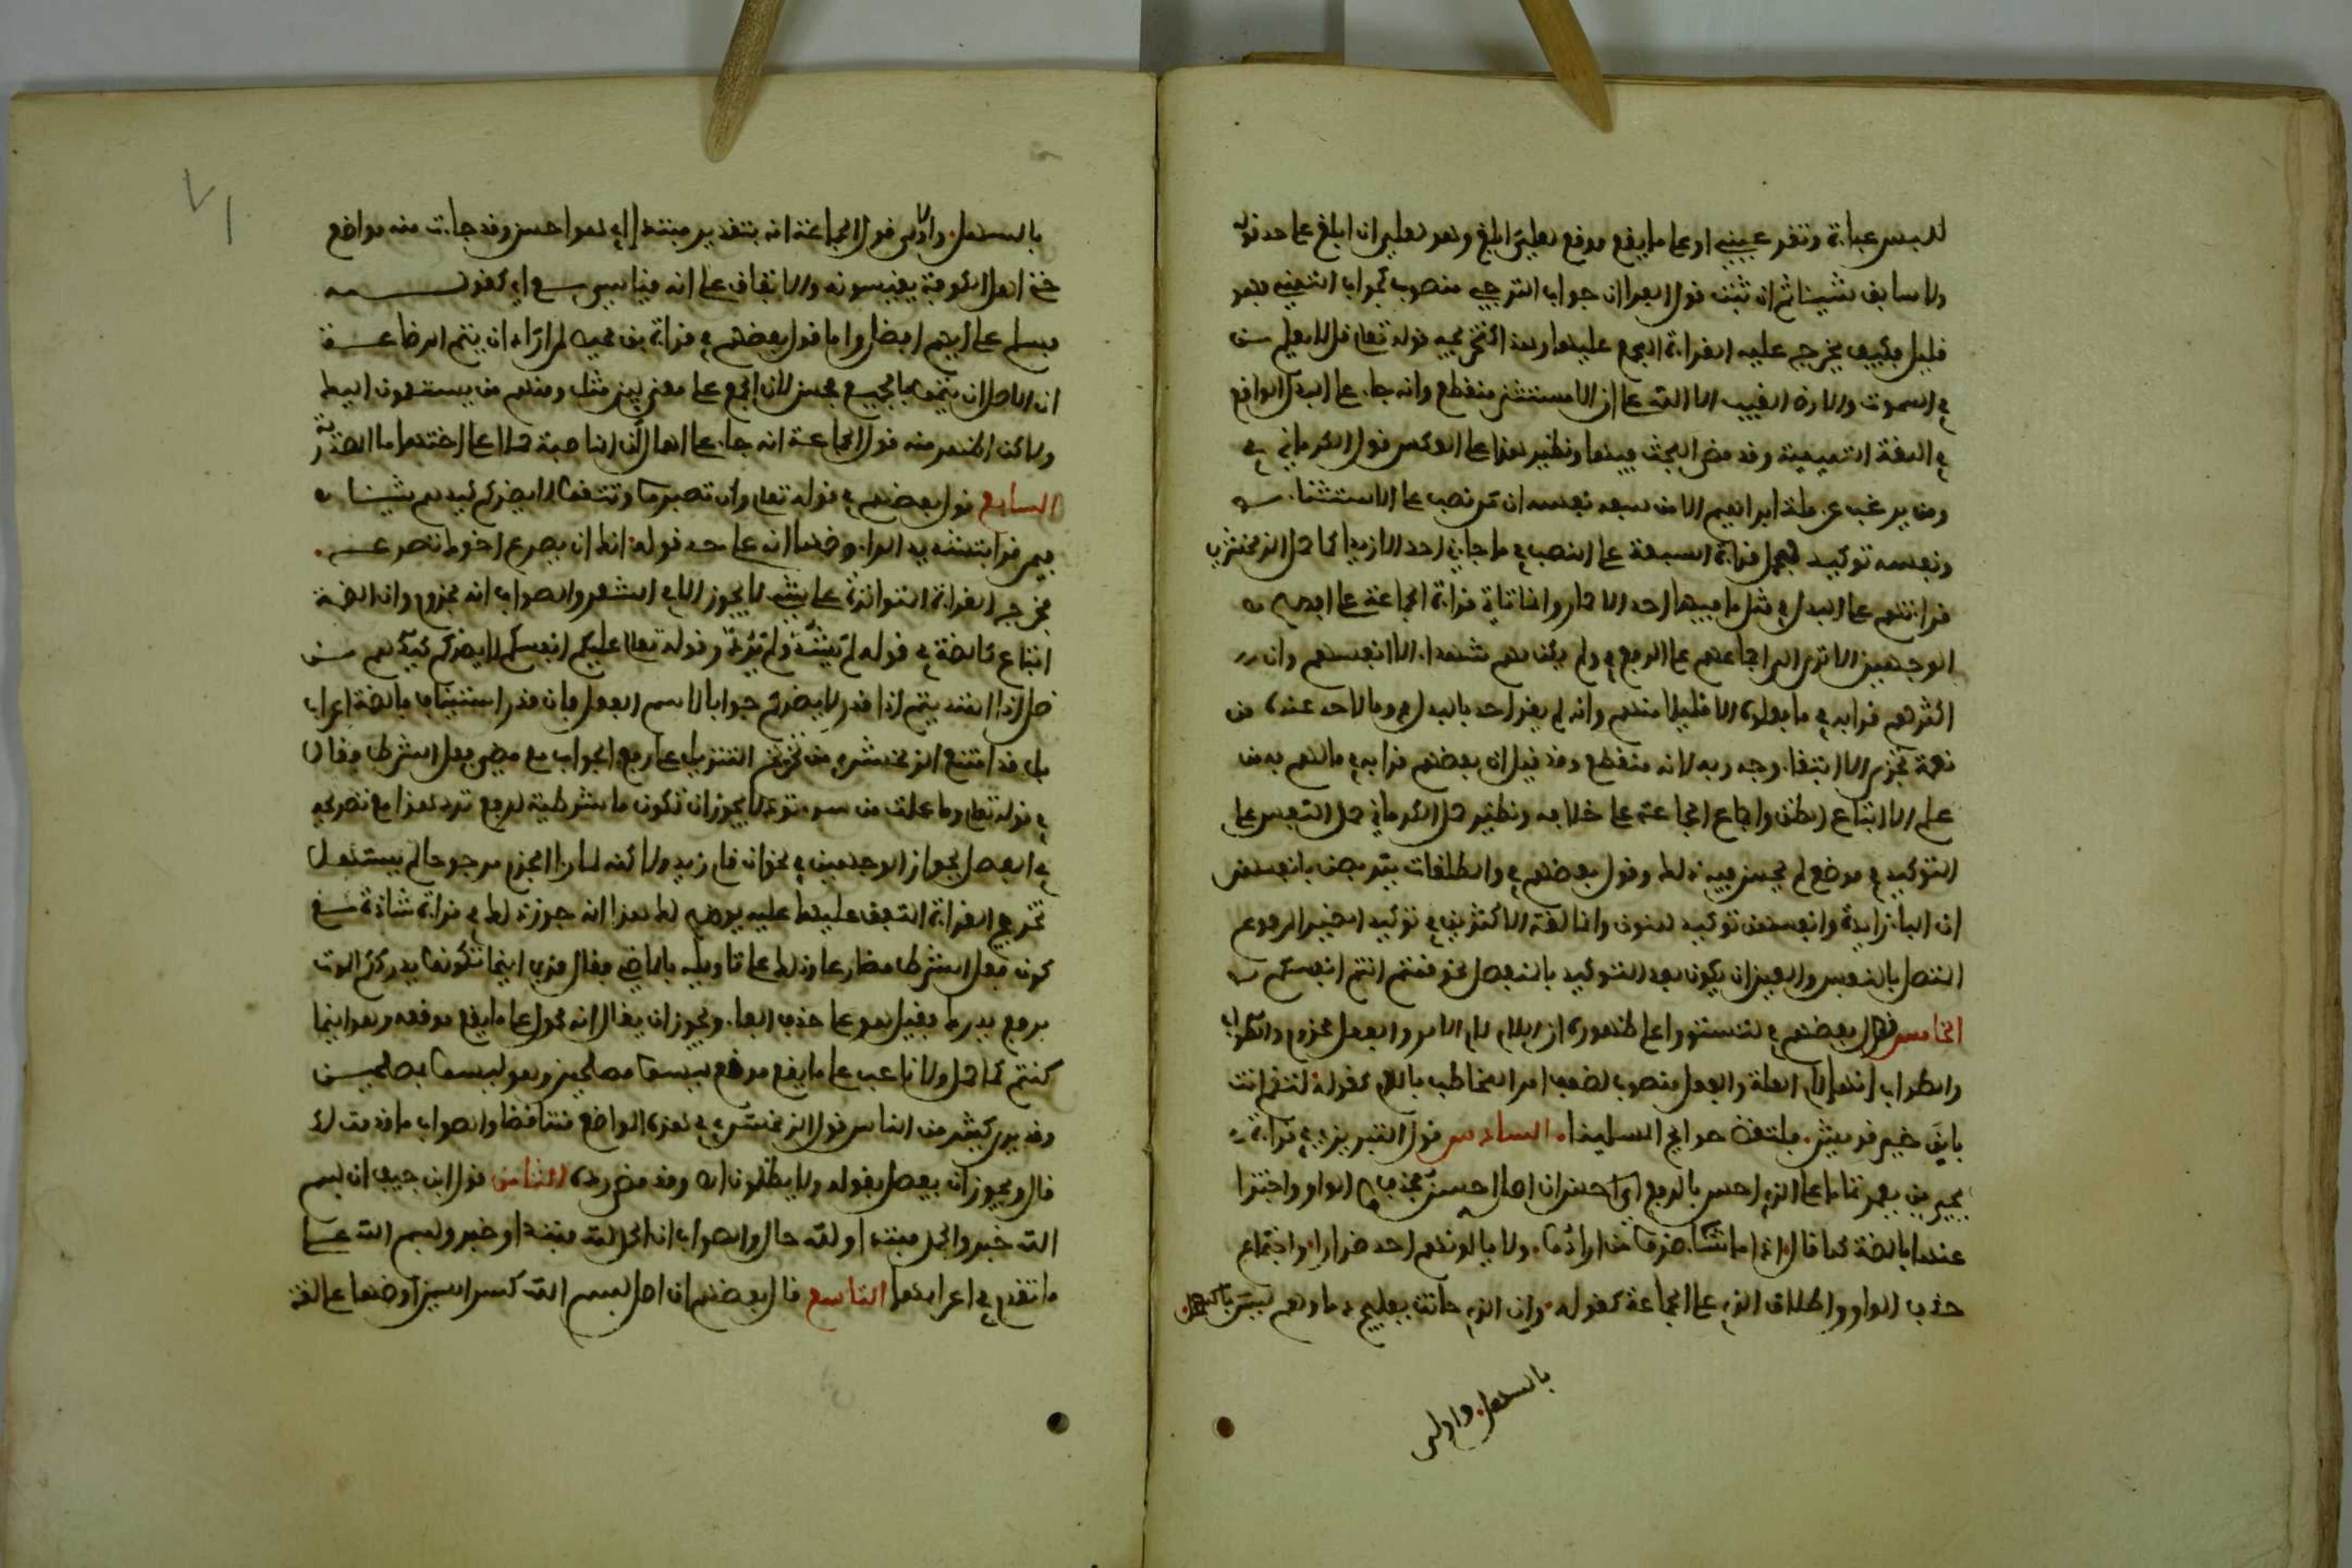 للبس عباءة وتقر عيني او على ما يقع موقع لعلي ابلغ وهو لعلي ان ابلغ على حد قوله
ولا سابق شيئا ثم ان ثبت قول الفرا ان جواب الترجي منصوب كجواب التمني فهو
قليل فكيف تخرج عليه القراءة المجمع عليها وهذا كتخريجه قوله تعلى قل لا يعلم من
في السموت والارض الغيب الا الله على ان الاستثنا منقطع وانه جاء على البدل الواقع
في اللغة التميمية وقد مضى البحث فيها ونظير هذا على العكس قول الكرماني في
ومن يرغب عن ملة ابراهيم الا من سفه نفسه ان من نصب على الاستثناء
ونفسه توكيد فحمل قراءة السبعة على النصب في ما جاءني احد الا زيدا كما حمل الزمخشري
قراءتهم على البدل في مثل ما فيها احد الا حمار وانما تاتي قراءة الجماعة على افصح
الوجهين الا ترى الى اجماعهم على الرفع في ولم يكن لهم شهداء الا انفسهم وان
اكثرهم قرا به في ما فعلوه الا قليلا منهم وانه لم يقرا احد بالبدل في وما لاحد عنده من
نعمة تجزى الا ابتغاء وجه ربه لانه منقطع وقد قيل ان بعضهم قرا به في ما لهم به من
علم الا اتباع الظن واجماع الجماعة على خلافه ونظير حمل الكرماني حمل النفس على
التوكيد في موضع لم يحسن فيه ذلك وقول بعضهم في والمطلقات يتربصن بانفسهن
ان الباء زايدة وانفسهن توكيد للنون وانما لغة الاكثرين في توكيد الضمير المرفوع
المتصل بالنفس والعين ان يكون بعد التوكيد بالمنفصل نحو قمتم انتم انفسكم
الخامس قول بعضهم في لتستووا على ظهوره ان اللام لام الامر والفعل مجزوم والصواب
والصواب انها لام العلة والفعل منصوب لضعف امر المخاطب باللام كقوله لتقم انت
يا بن خير قريش . فلتقض حوايج المسلمينا . السادس قول التبريزي في قراءة
يحيى بن يعمر تماما على الذي احسن بالرفع ان اصله احسنوا فحذف الواو واجتزا
عنها بالضمة كما قال اذا ما شاء ضروا من ارادوا . ولا يالوهم احد ضرارا واجتماع
حذف الواو واطلاق الذي على الجماعة كقوله . وان الذي حانت بفلج دماوهم ليس بالسهل
بالسهل . واولى
٧١
بالسهل . والاولى قول الجماعة انه بتقدير مبتدا اي هو احسن وقد جاءت منه مواضع
حتى ان اهل الكوفة يقيسونه والاتفاق على انه قياس مع اي كقوله
فسلم على ايهم افضل واما قول بعضهم في قراءة ابن محيصن لمن اراد ان يتم الرضاعة
ان الاصل ان يتموا بالجمع فحسن لان الجمع على معنى من مثل ومنهم من يستمعون اليك
ولكن اظهر منه قول الجماعة انه جاء على اهمال ان الناصبة حملا على اختها ما المصدرية
السابع قول بعضهم في قوله تعلى وان تصبروا وتتقوا لا يضركم كيدهم شيئا
فيمن قرا بتشديد الراء وضمها انه على حد قوله انك ان يصرع اخوك تصرع
فخرج القراءة المتواترة على شيء لا يجوز الا في الشعر والصواب انه مجزوم وان الضمة
اتباع كالضمة في قولك لم يشد ولم يرد وقوله تعلى عليكم انفسكم لا يضركم كيدهم من
ضل اذا اهتديتم اذا قدر لا يضركم جوابا لاسم الفعل فان قدر استينافا فالضمة اعراب
بل قد امتنع الزمخشري من تخريج التنزيل على رفع الجواب مع مضي فعل الشرط فقال
في قوله تعلى وما عملت من سوء تود لا يجوز ان تكون ما شرطية لرفع تود هذا مع تصريحه
في المفصل بجواز الوجهين في نحو ان قام زيد ولاكنه لما را الجزم مرجوحا لم يستسهل
تخريج القراءة المتفق عليها عليه يوضح لك هذا انه جوز ذلك في قراءة شاذة مع
كون فعل الشرط مضارعا وذلك على تاويله بالماضي فقال قري اينما تكونوا يدرككم الموت
برفع يدرك فقيل هو على حذف الفاء ويجوز ان يقال انه محمول على ما يقع موقعه وهو اينما
كنتم كما حمل ولا ناعب على ما يقع موقع ليسوا مصلحين وهو ليسوا بمصلحين
وقد يرى كثير من الناس قول الزمخشري في هذه المواضع متناقضا والصواب ما قدمت لك
قال ويجوز ان يتصل بقوله ولا يظلمون اه وقد مضى رده الثامن قول ابن حبيب ان بسم
الله خبر والحمد مبتدا ولله حال والصواب ان الحمد لله مبتدا وخبر وبسم الله على
ما تقدم في اعرابها التاسع قال بعضهم ان اصل بسم الله كسر السين او ضمها على لغة